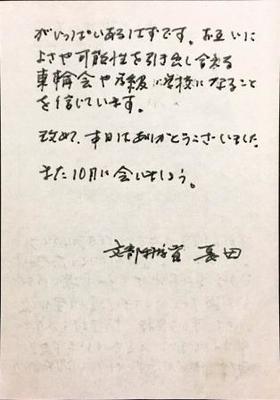 がいっぱいあるはずです。お互いに
よさや可能性を引き出し合える
車輪会や学級、学校になること
を信じています。
改めて、本日はありがとうございました。
また10月に会いましょう。
文部科学省 長田